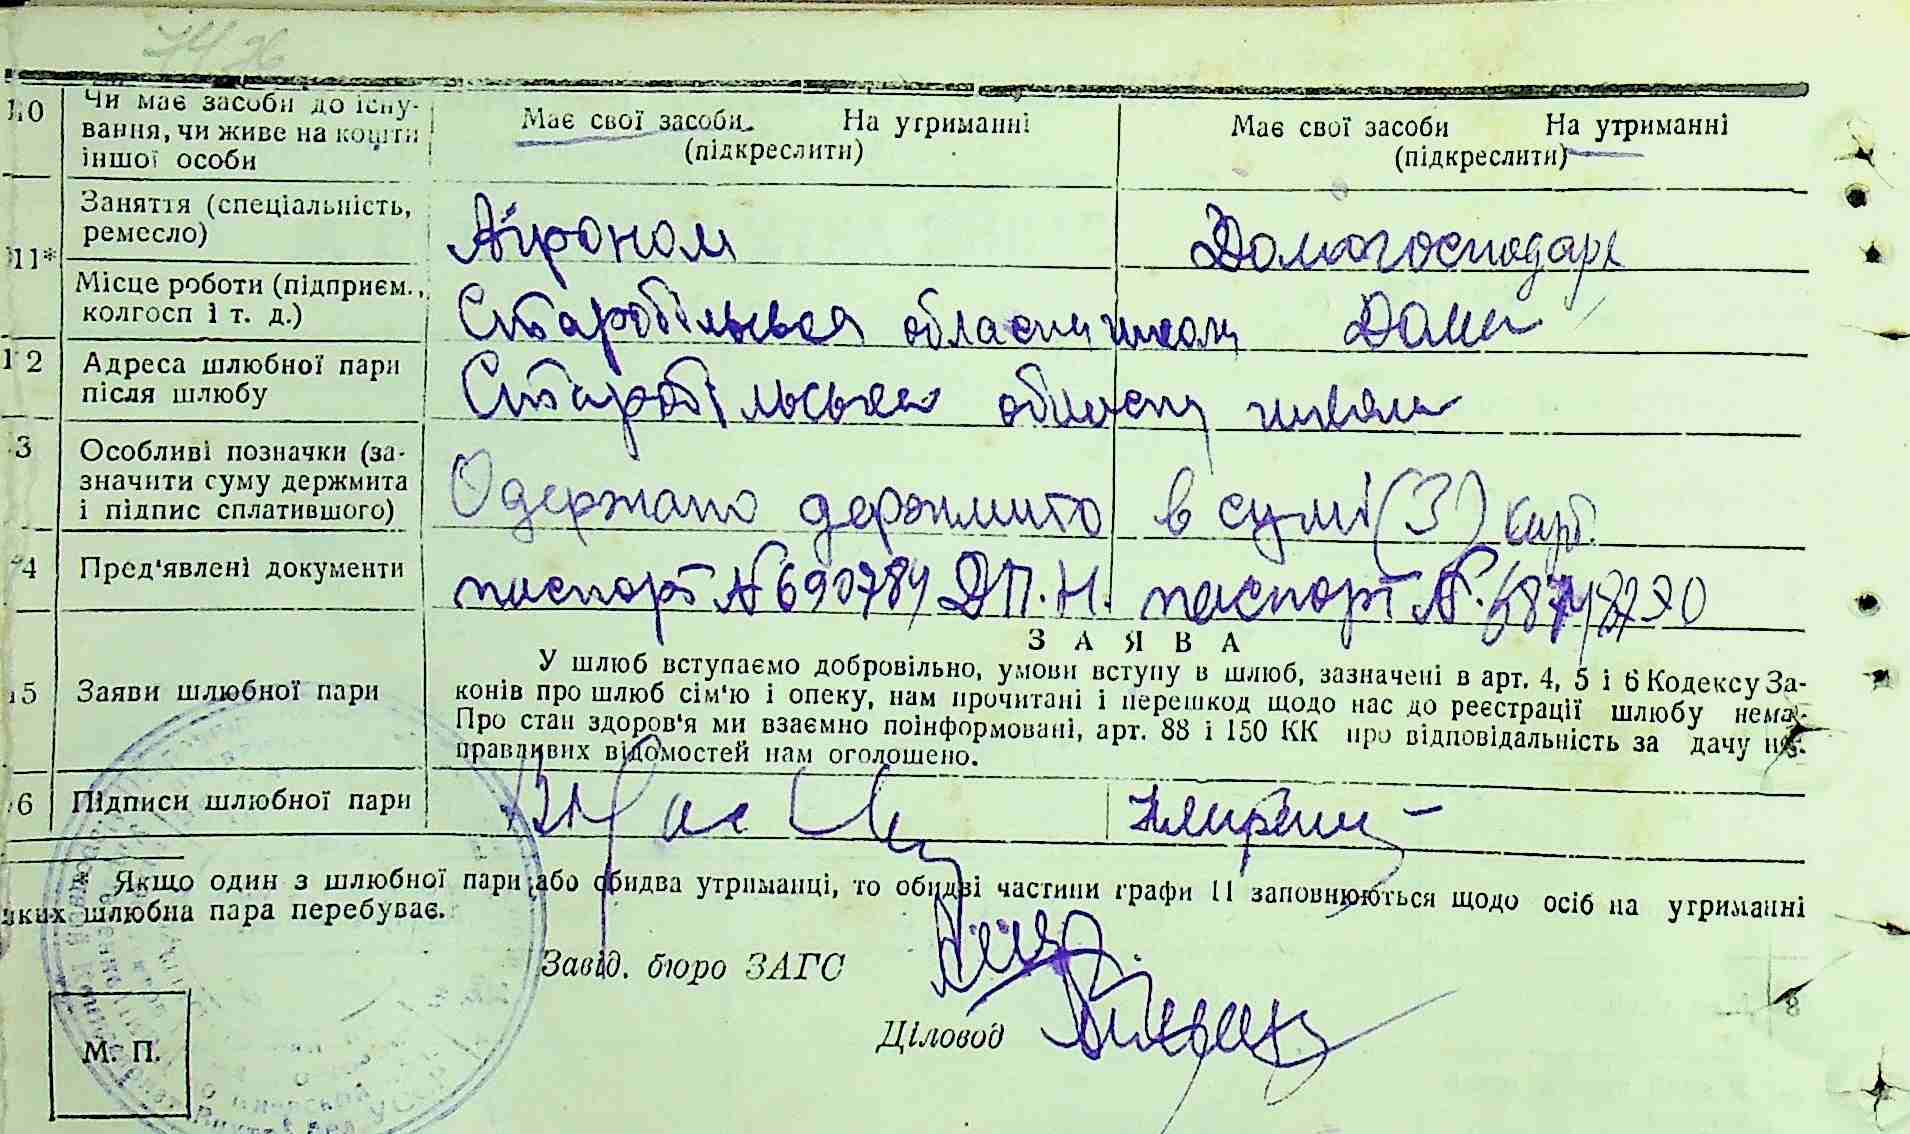 10 Чи має засоби до існу-
вання, чи живе на кошти
іншої особи
Має свої засоби. На утриманні
(підкреслити)
Має свої засоби На утриманні
(підкреслити)
11* Заняття (спеціальність,
ремесло)
Агроном Домогосподарк
Місце роботи (підприєм.,
колгосп і т. д.)
Старобільська обласна школа Дома
12 Адреса шлюбної пари
після шлюбу
Старобільська обласна школа
3 Особливі позначки (за-
значити суму держмита
і підпис сплатившого)
Одержано держмито в сумі (3) карб.
4 Пред'явлені документи
паспорт № 690784 ДП.Н. паспорт №
З А Я В А
15 Заяви шлюбної пари
У шлюб вступаємо добровільно, умови вступу в шлюб, зазначені в арт. 4, 5 і 6 Кодексу За-
конів про шлюб сім'ю і опеку, нам прочитані і перешкод щодо нас до реєстрації шлюбу нема.
Про стан здоров'я ми взаємно поінформовані, арт. 88 і 150 КК про відповідальність за дачу не-
правдивих відомостей нам оголошено.
6 Підписи шлюбної пари
* Якщо один з шлюбної пари або обидва утриманці, то обидві частини графи 11 заповнюються щодо осіб на утриманні
яких шлюбна пара перебуває.
Завід. бюро ЗАГС
Діловод
М. П.